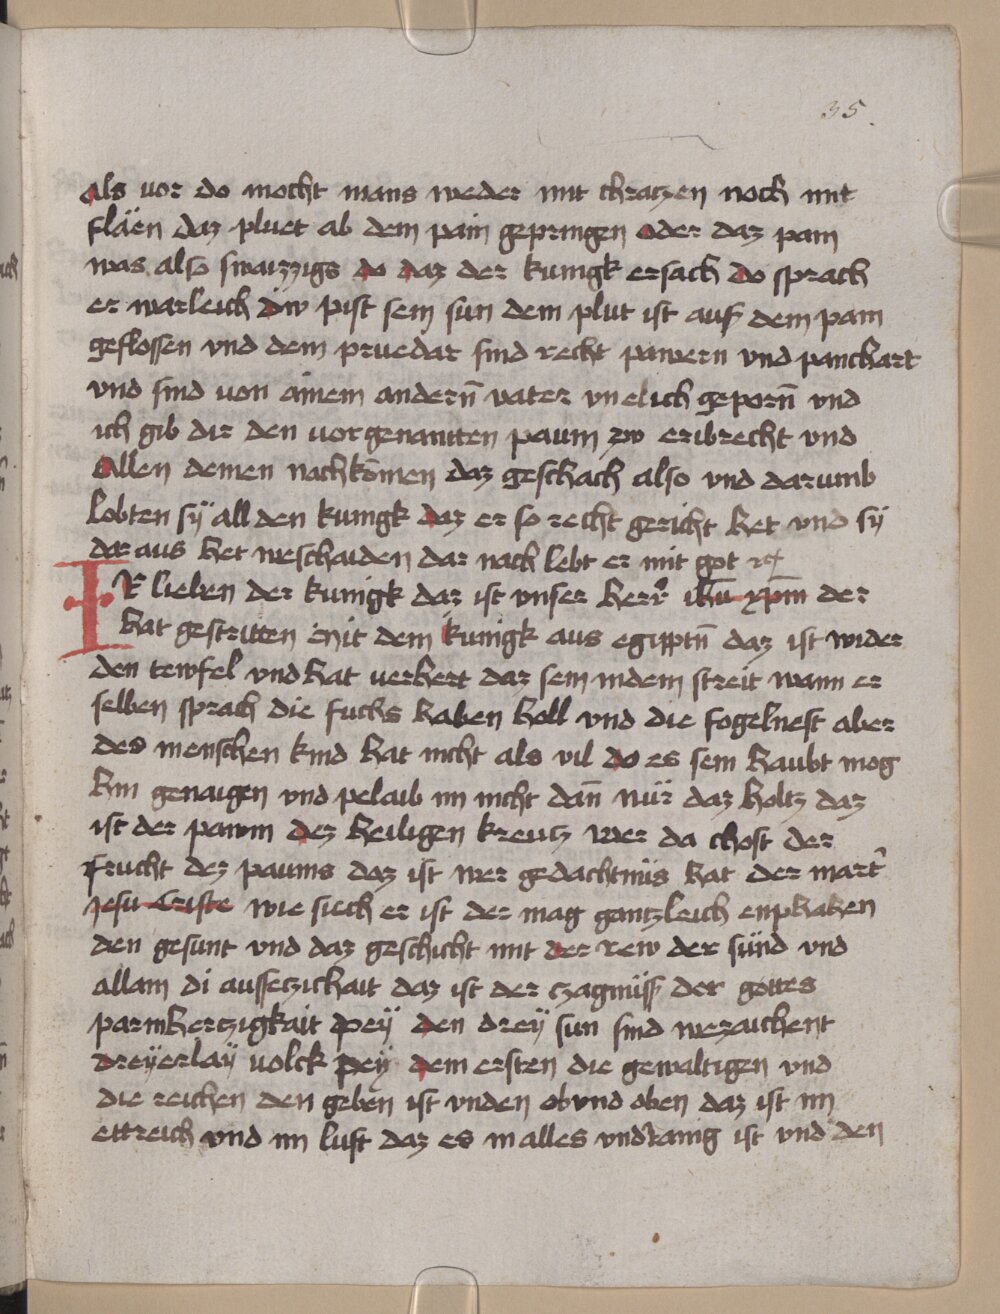 35.
als vor do mocht mans weder mit chratzen noch mit
fläen daz pluet ab dem pain gepringen oder daz pain
was also swaizzigs do daz der kunigk ersach do sprach
er warleich diw pist sein sun dein plut ist auß dem pain
geflossen vnd dein pruedar sind recht pawern vnd panchart
vnd sind von ainem andern̄ vater vnelich geporn̄ vnd
ich gib dir den vorgenanten paum zw eribrecht vnd
allen deinen nachkōmen daz geschach also vnd darumb
lobten sÿ all den kunigk daz er so recht gericht het vnd sÿ
dar aus het weschaiden dar nach lebt er mit got ꝛc
IR lieben der kunigk daz ist vnser herr ihū xp̄m der
hat gestritten mit dem kunigk aus egipptn̄ daz ist wider
den tewfel vnd hat verhert daz sein in dem streit wann er
selben sprach die fuchs haben holl vnd die fogelnest aber
des menschen kind hat nicht als vil do es sein haubt mog
hin genaigen vnd pelaib im nicht dan̄ nür daz holtz daz
ist der pawm dez heiligen kreutz wer da chost der
frucht dez paums daz ist wer gedachtnüs hat der mart
jesu criste wie siech er ist der mag gantzleich enphahen
den gesunt vnd daz geschicht mit der rew der sünd vnd
allain di aussetzichait daz ist der czagnüss der gottes
parmhertzigkait pey den dreÿ sun sind wezaichent
dreÿerlaÿ volck peÿ dem ersten die gewaltigen vnd
die reichen den geben ist vnden ob vnd oben daz ist im
ettreich vnd im luft daz es in alles vndtanig ist vnd den